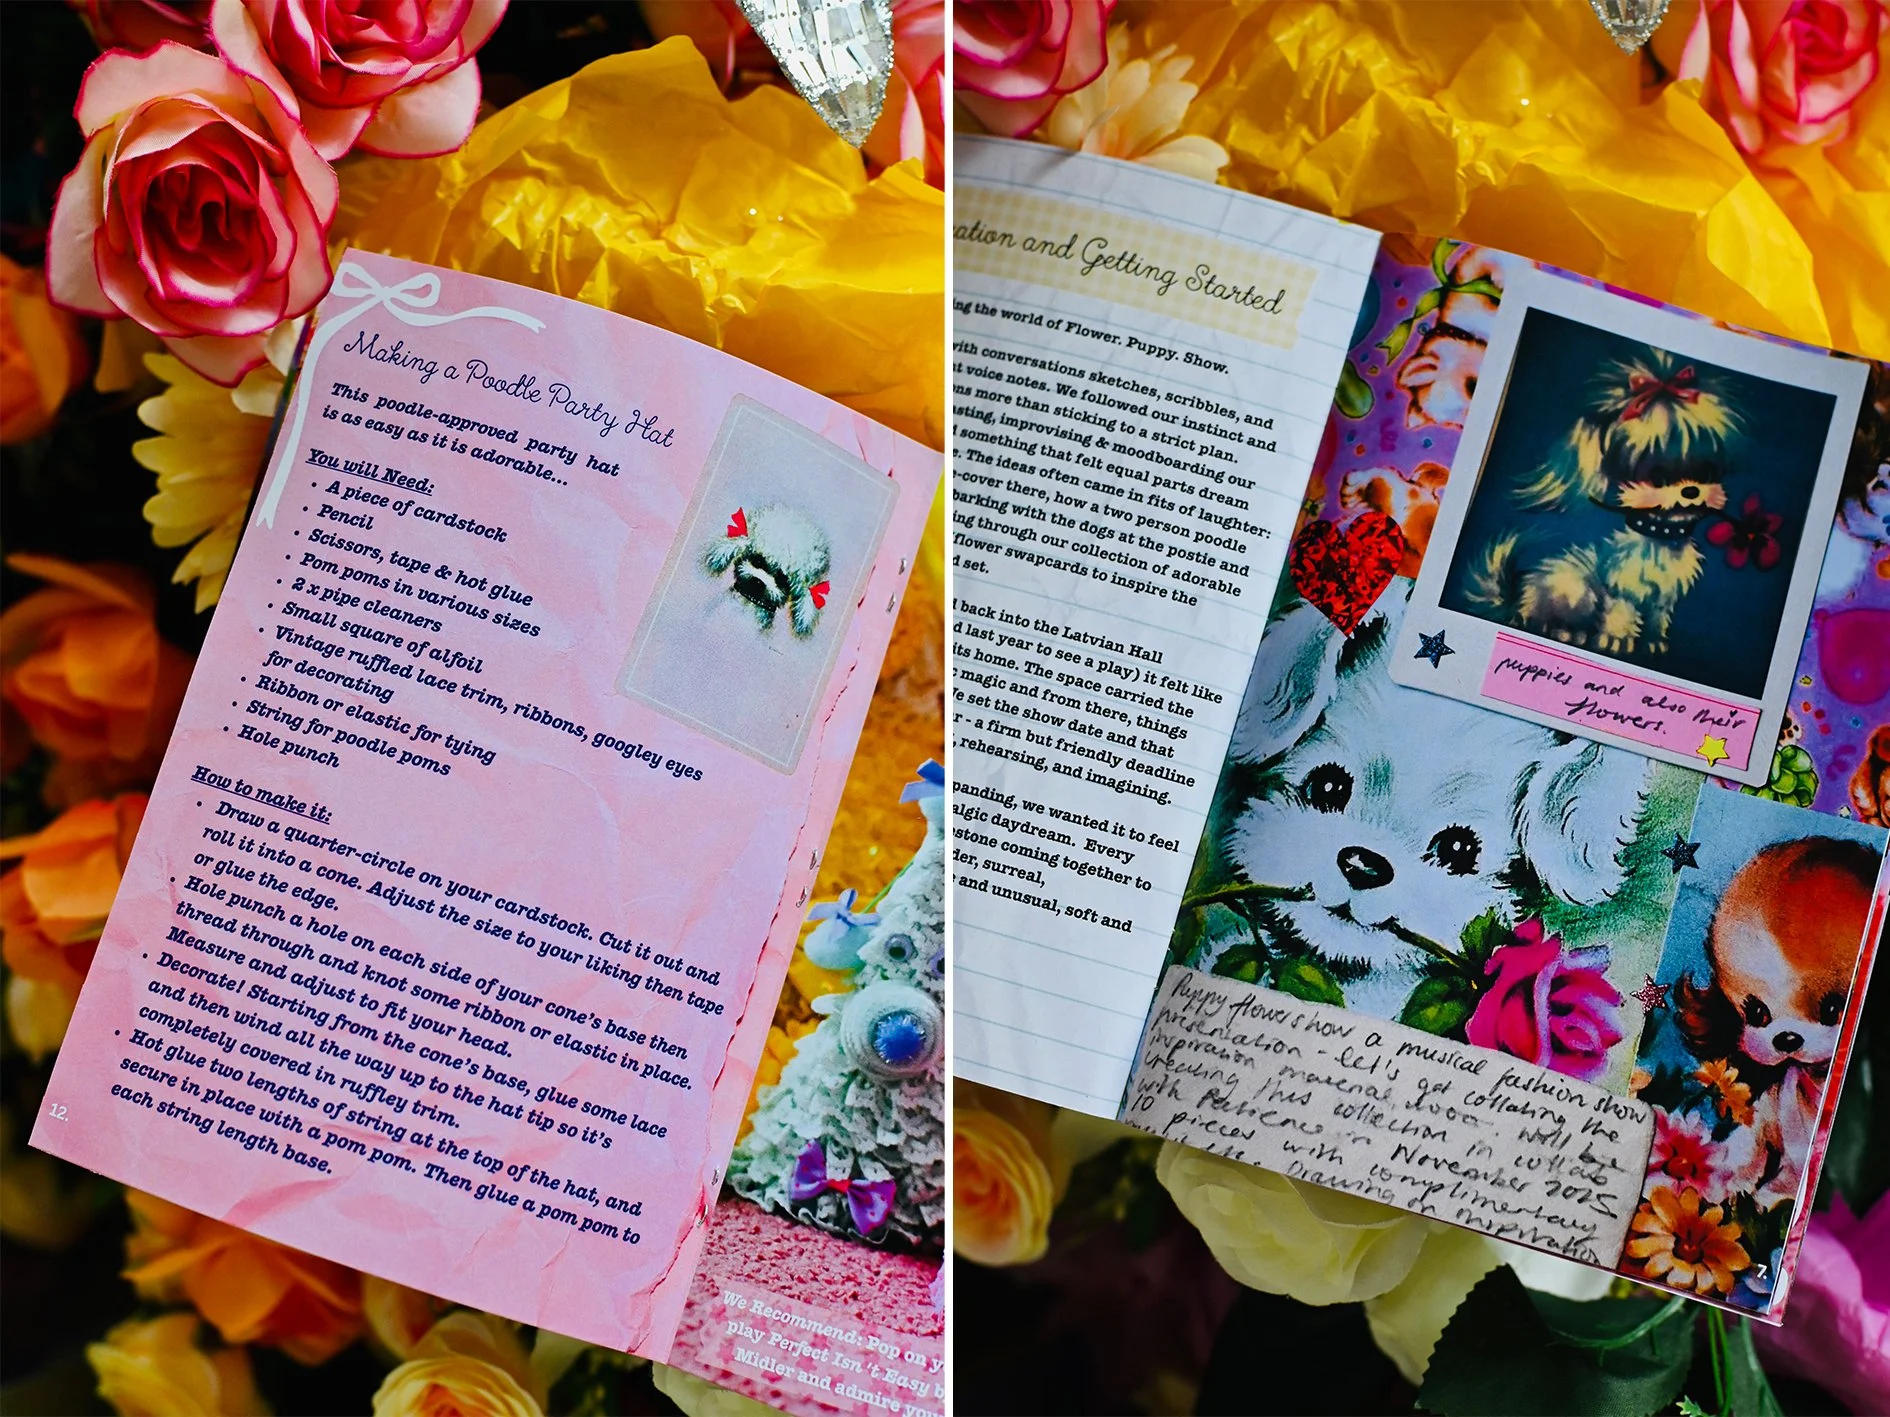 Making a Poodle Party Hat
This poodle-approved party hat
is as easy as it is adorable...
You will Need:
• A piece of cardstock
• Pencil
• Scissors, tape & hot glue
• Pom poms in various sizes
• 2 x pipe cleaners
• Small square of alfoil
• Vintage ruffled lace trim, ribbons, googley eyes
for decorating
• Ribbon or elastic for tying
• String for poodle poms
• Hole punch
How to make it:
• Draw a quarter-circle on your cardstock. Cut it out and
roll it into a cone. Adjust the size to your liking then tape
or glue the edge.
• Hole punch a hole on each side of your cone's base then
thread through and knot some ribbon or elastic in place.
Measure and adjust to fit your head.
• Decorate! Starting from the cone's base, glue some lace
and then wind all the way up to the hat tip so it's
completely covered in ruffley trim.
• Hot glue two lengths of string at the top of the hat, and
secure in place with a pom pom. Then glue a pom pom to
each string length base.
12.
We Recommend: Pop on
play Perfect Isn't Easy
Midler and admire
and Getting Started
the world of Flower. Puppy. Show.
with conversations sketches, scribbles, and
voice notes. We followed our instinct and
more than sticking to a strict plan.
improvising & moodboarding our
something that felt equal parts dream
The ideas often came in fits of laughter:
-cover there, how a two person poodle
barking with the dogs at the postie and
through our collection of adorable
flower swapcards to inspire the
set.
back into the Latvian Hall
last year to see a play) it felt like
its home. The space carried the
magic and from there, things
set the show date and that
- a firm but friendly deadline
, rehearsing, and imagining.
we wanted it to feel
daydream. Every
coming together to
surreal,
and unusual, soft and
puppies and also their
flowers.
Puppy flowershow a musical fashion show
presentation - let's get collating the
inspiration material, Will be
creating this collection in collab
with Patience in November 2025
10 pieces with complimentary
Drawing on inspiration
7.